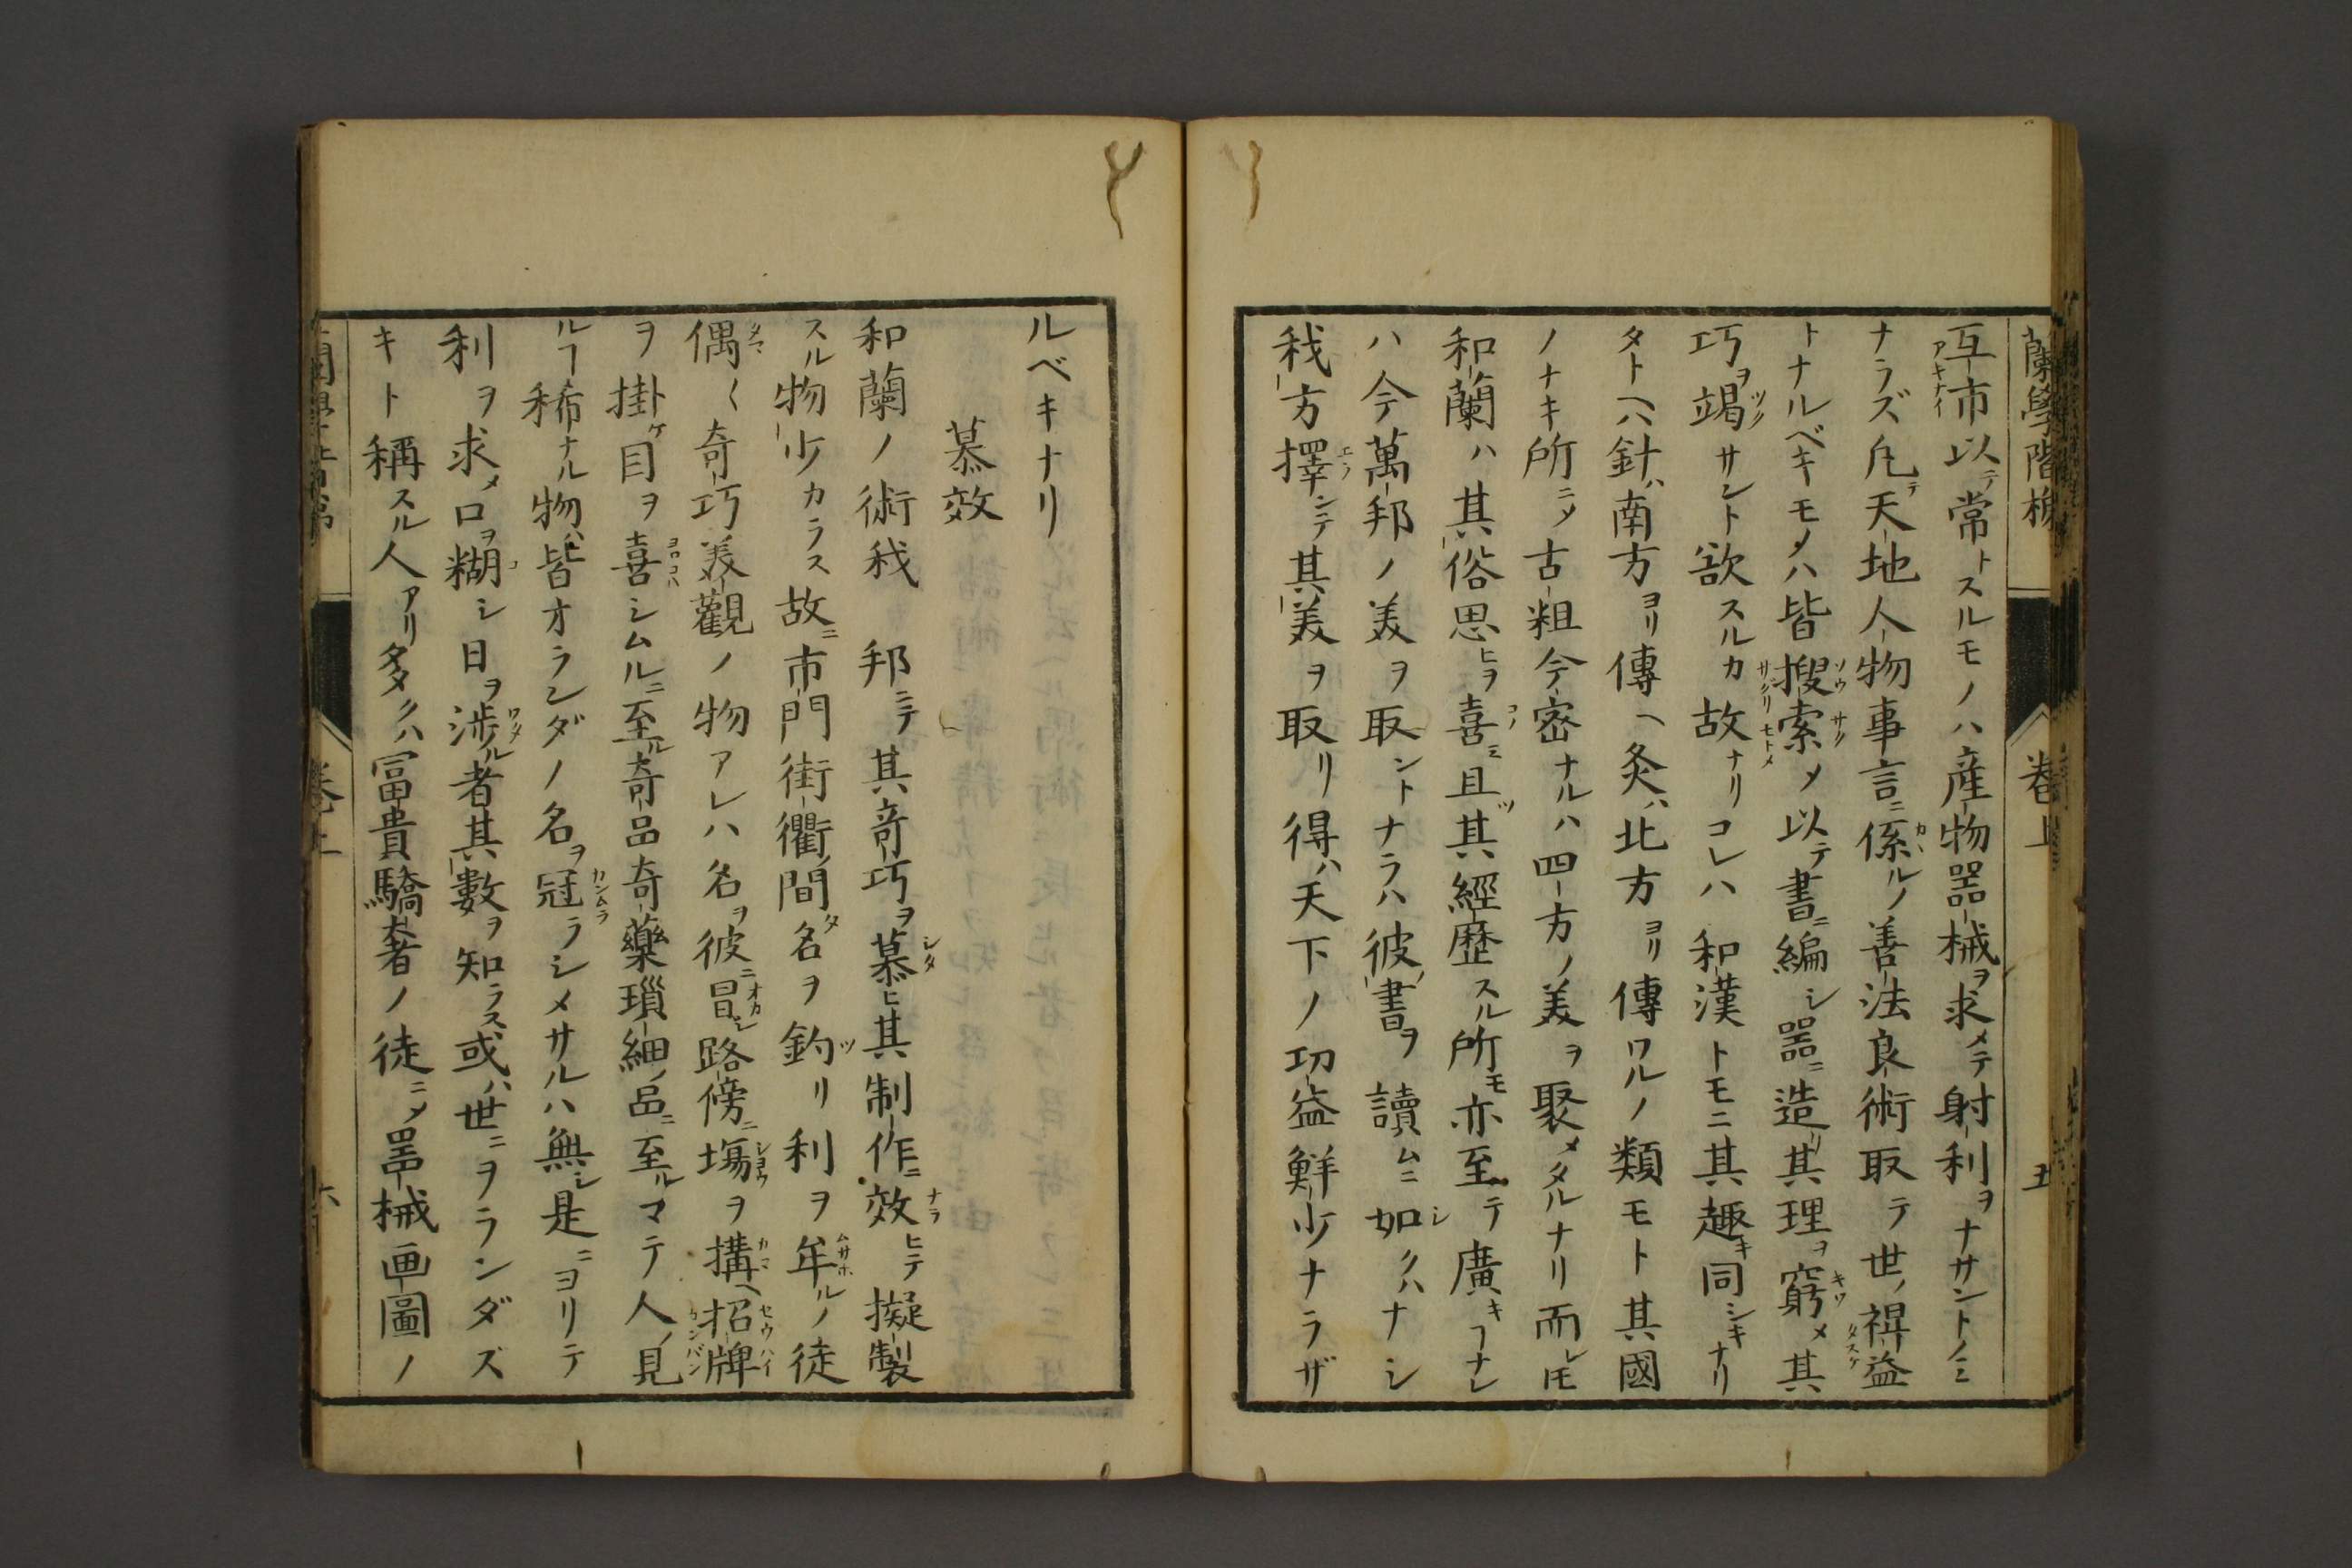 蘭學階梯 卷上 五
互市以テ常トスルモノハ産物器械ヲ求メテ射利ヲナサントノミ
ナラズ凡テ天地人物事言ニ係ルノ善法良術取テ世ノ裨益
トナルベキモノハ皆搜索メ以テ書ニ編シ噐ニ造リ其理ヲ窮メ其
巧ヲ竭サント欲スルカ故ナリコレハ和漢トモニ其趣キ同シキナリ
タトヘハ針ハ南方ヨリ傳ヘ灸ハ北方ヨリ傳ワルノ類モト其國
ノナキ所ニメ古粗今密ナルハ四方ノ美ヲ聚メタルナリ而レ𪜈
和蘭ハ其俗思ヒヲ喜ミ且ツ其經歴スル所モ亦至テ廣キヿナレ
ハ今萬邦ノ美ヲ取ントナラハ彼ノ書ヲ讀ムニ如クハナシ
我方擇ンテ其美ヲ取リ得ハ天下ノ功益鮮少ナラザ
ルベキナリ
慕效
和蘭ノ術我 邦ニテ其竒巧ヲ慕ヒ其制作ニ效ヒテ擬製
スル物少カラス故ニ市門街衢ノ間タ名ヲ釣リ利ヲ牟ルノ徒
偶〱奇巧美觀ノ物アレハ名ヲ彼ニ冒シ路傍ニ塲ヲ搆ヘ招牌
ヲ掛ケ目ヲ喜シムルニ至ル奇品奇藥瑣細ノ品ニ至ルマテ人ノ見
ルヿ稀ナル物ハ皆オランダノ名ヲ冠ラシメサルハ無シ是ニヨリテ
利ヲ求メ口ヲ糊シ日ヲ渉ル者其數ヲ知ラス或ハ世ニヲランダズ
キト稱スル人アリ多クハ冨貴驕奢ノ徒ニメ噐械画圖ノ
卷上 六